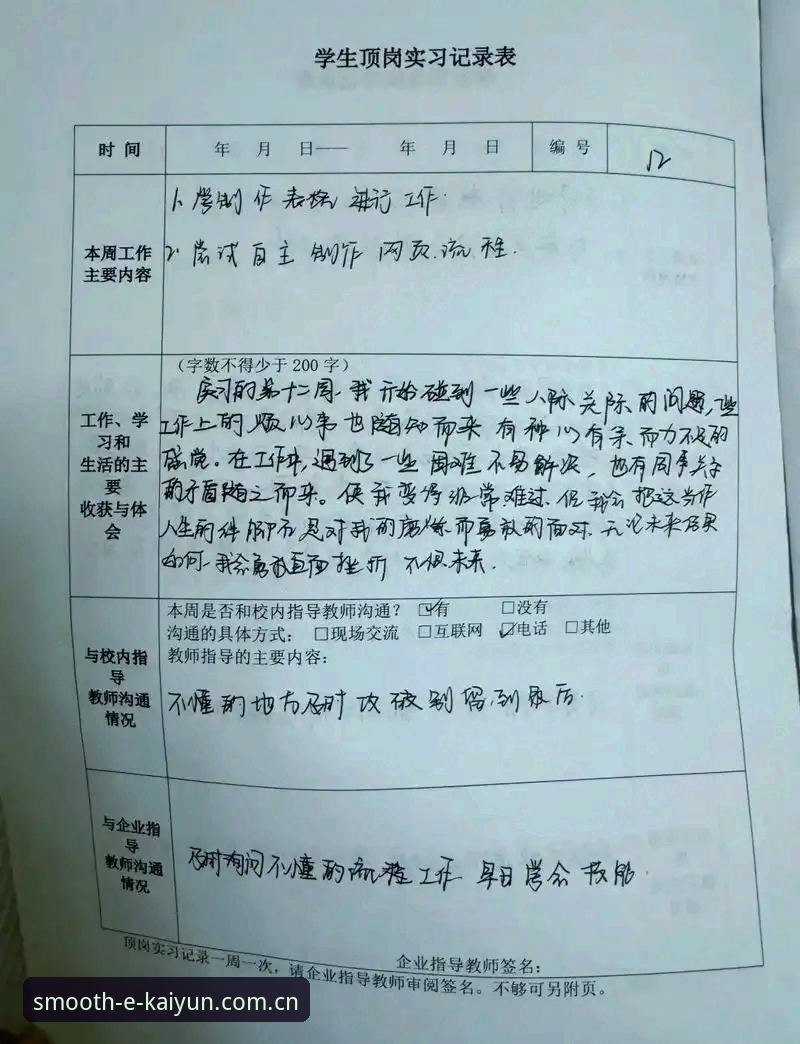 学生顶岗实习记录表
时 间 年 月 日—— 年 月 日 编 号 12
本周工作
主要内容
1. 学制作表格 进行工作.
2. 尝试自主制作网页.流程.
(字数不得少于 200 字)
工作、学
习和
生活的主
要
收获与体
会
实习的第十二周,我开始碰到一些人际关际的问题,些
工作上的烦心事也随知而来 有种心有余而力不足的
感觉。在工作中,遇到了一些困难不易解决,也有同事关于
的矛盾随之而来。使我变得非常难过.但我会把这当作
人生的伴脚石是对我的磨炼而勇敢的面对.无论未来结果
如何,我会勇敢直面挫折 不惧未来.
与校内指
导
教师沟通
情况
本周是否和校内指导教师沟通? ☑有 □没有
沟通的具体方式: □现场交流 □互联网 ☑电话 □其他
教师指导的主要内容:
不懂的地方及时攻破别留到最后.
与企业指
导
教师沟通
情况
及时询问不懂的流程工作 早日学会技能.
企业指导教师签名:
顶岗实习记录一周一次,请企业指导教师审阅签名。不够可另附页。
smooth-e-kaiyun.com.cn